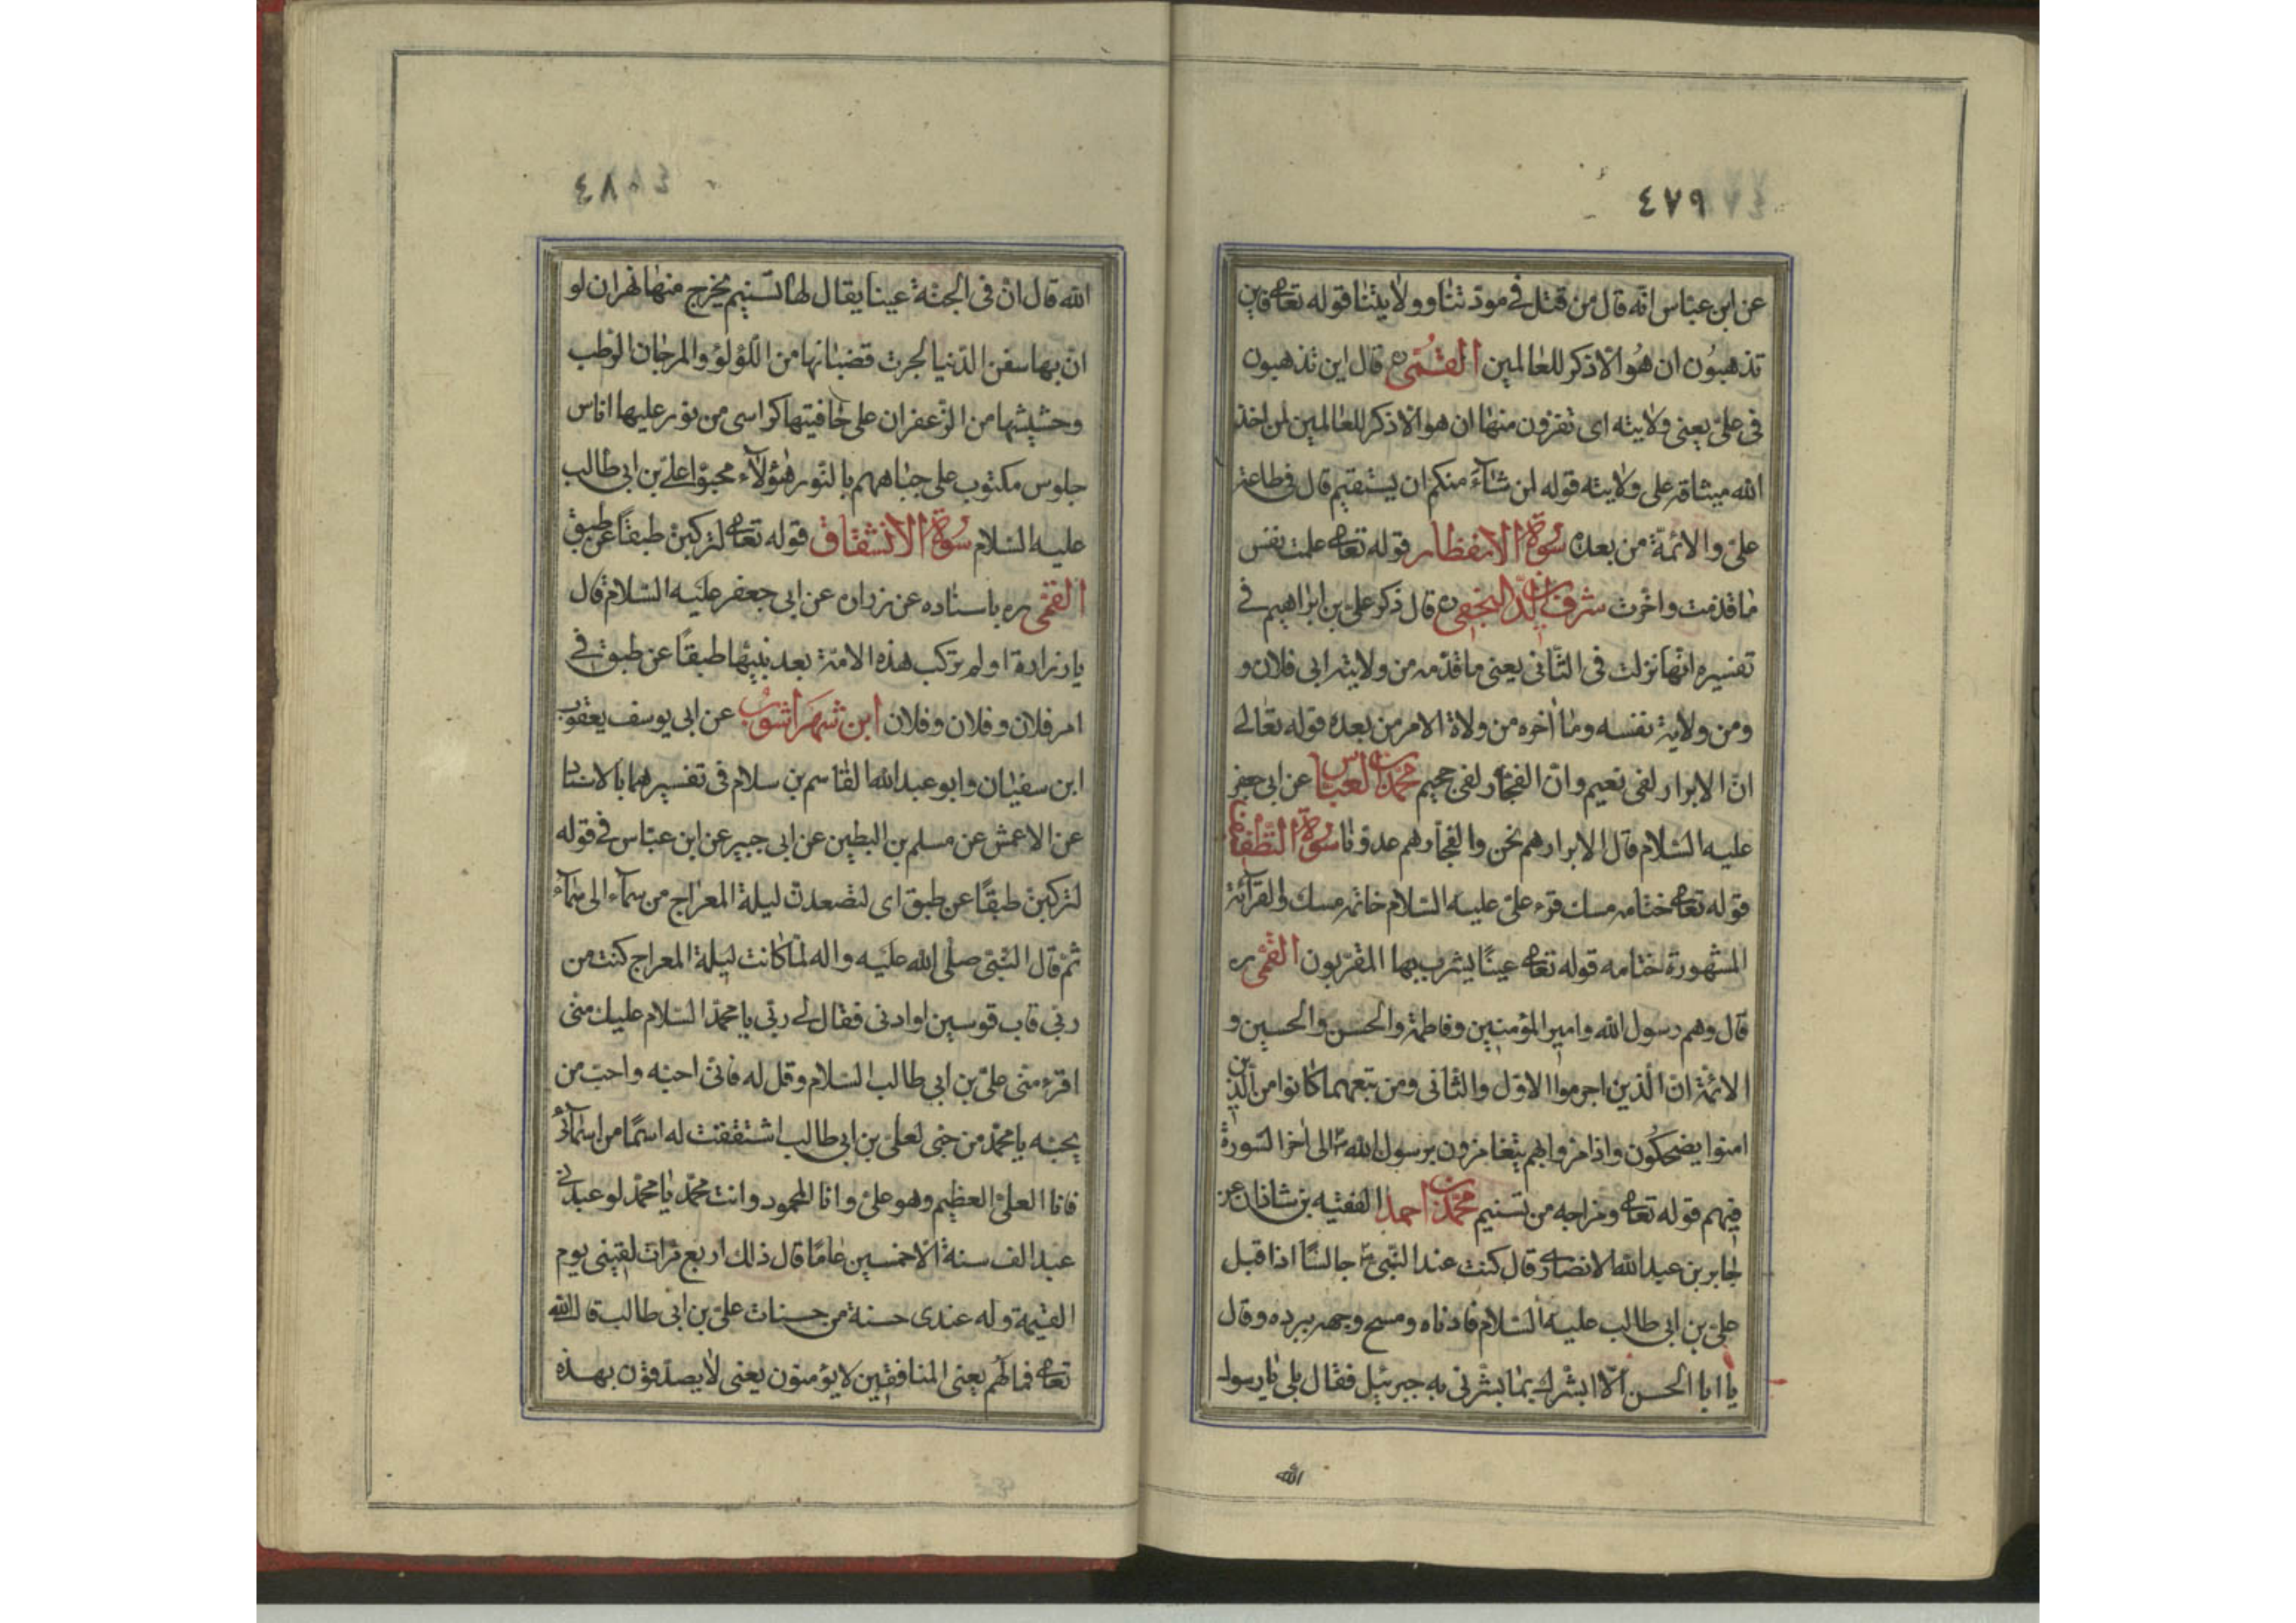 ٤٧٩
عن ابن عباس انه قال من قتل فى مودتنا وولايتنا قوله تعالى فاين
تذهبون ان هو الا ذكر للعالمين القمى ره قال اين تذهبون
فى على يعنى ولايته اى تفرون منها ان هو الا ذكر للعالمين لمن اخذ
الله ميثاقه على ولايته قوله لمن شآء منكم ان يستقيم قال فى طاعة
على والائمة من بعده سورة الانفطار قوله تعالى علمت نفس
ما قدمت واخرت شرف الدين النجفى ره قال ذكر على بن ابراهيم فى
تفسيره انها نزلت فى الثانى يعنى ما قدمه من ولاية ابى فلان و
ومن ولاية نفسه وما أخره من ولاة الامر من بعده قوله تعالى
ان الابرار لفى نعيم وان الفجار لفى جحيم محمد بن العباس عن ابى جعفر
عليه السلام قال الابرار هم نحن والفجار هم عدونا سورة التطفيف
قوله تعالى ختامه مسك قرء على عليه السلام خاتمه مسك والقرآئة
المشهورة ختامه قوله تعالى عينًا يشرب بها المقربون القمى ره
قال وهم رسول الله وامير المؤمنين وفاطمة والحسن والحسين و
الائمة ان الذين اجرموا الاول والثانى ومن تبعهما كانوا من الذين
امنوا يضحكون واذا مروا بهم يتغامزون برسول الله ص الى اخر السورة
فيهم قوله تعالى ومزاجه من تسنيم محمد بن احمد الفقيه بن شاذان عن
جابر بن عبد الله الانصارى قال كنت عند النبى ص جالسًا اذا قبل
على بن ابى طالب عليه السلام فادناه ومسح وجهه ببرده وقال
يا ابا الحسن الا ابشرك بما بشرنى به جبرئيل فقال بلى يا رسول
الله
٤٨٠
الله قال ان فى الجنة عينا يقال لها تسنيم يخرج منها نهران لو
ان بها سفن الدنيا لجرت قضبانها من اللؤلؤ والمرجان الرطب
وحشيشها من الزعفران على حافيتها كراسى من نور عليها اناس
جلوس مكتوب على جباههم بالنور هؤلآء محبوا على بن ابى طالب
عليه السلام سورة الانشقاق قوله تعالى لتركبن طبقاً عن طبق
القمى ره باسناده عن زراره عن ابى جعفر عليه السلام قال
يا زرارة اولم تركب هذه الامة بعد نبيها طبقاً عن طبق فى
امر فلان وفلان وفلان ابن شهراشوب عن ابى يوسف يعقوب
ابن سفيان وابو عبد الله القاسم بن سلام فى تفسيرهما بالاسناد
عن الاعمش عن مسلم بن البطين عن ابى جبير عن ابن عباس فى قوله
لتركبن طبقًا عن طبق اى لتصعدن ليلة المعراج من سمآء الى سمآء
ثم قال النبى صلى الله عليه واله لما كانت ليلة المعراج كنت من
ربى قاب قوسين او ادنى فقال لى ربى يا محمد السلام عليك منى
اقرء منى على بن ابى طالب السلام وقل له فانى احبه واحب من
يحبه يا محمد من حبى لعلى بن ابى طالب اشتققت له اسمًا من اسمآئى
فانا العلى العظيم وهو على وانا المحمود وانت محمد يا محمد لو عبدنى
عبد الف سنة الا خمسين عامًا قال ذلك اربع مرات لقينى يوم
القيمة وله عندى حسنة من حسنات على بن ابى طالب قال الله
تعالى فما لهم يعنى المنافقين لا يؤمنون يعنى لا يصدقون بهذه